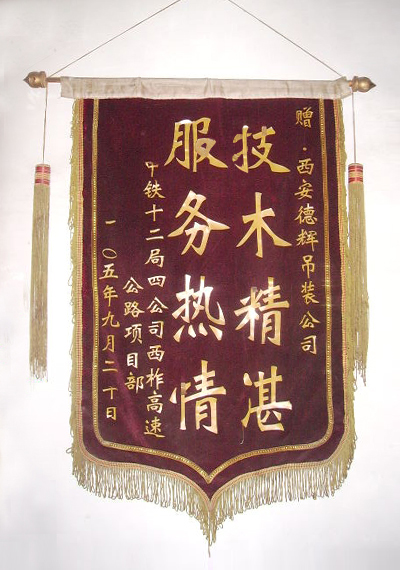 赠：西安德辉吊装公司
技木精湛
服务热情
中铁十二局四公司西柞高速
公路项目部
一〇五年九月二十日